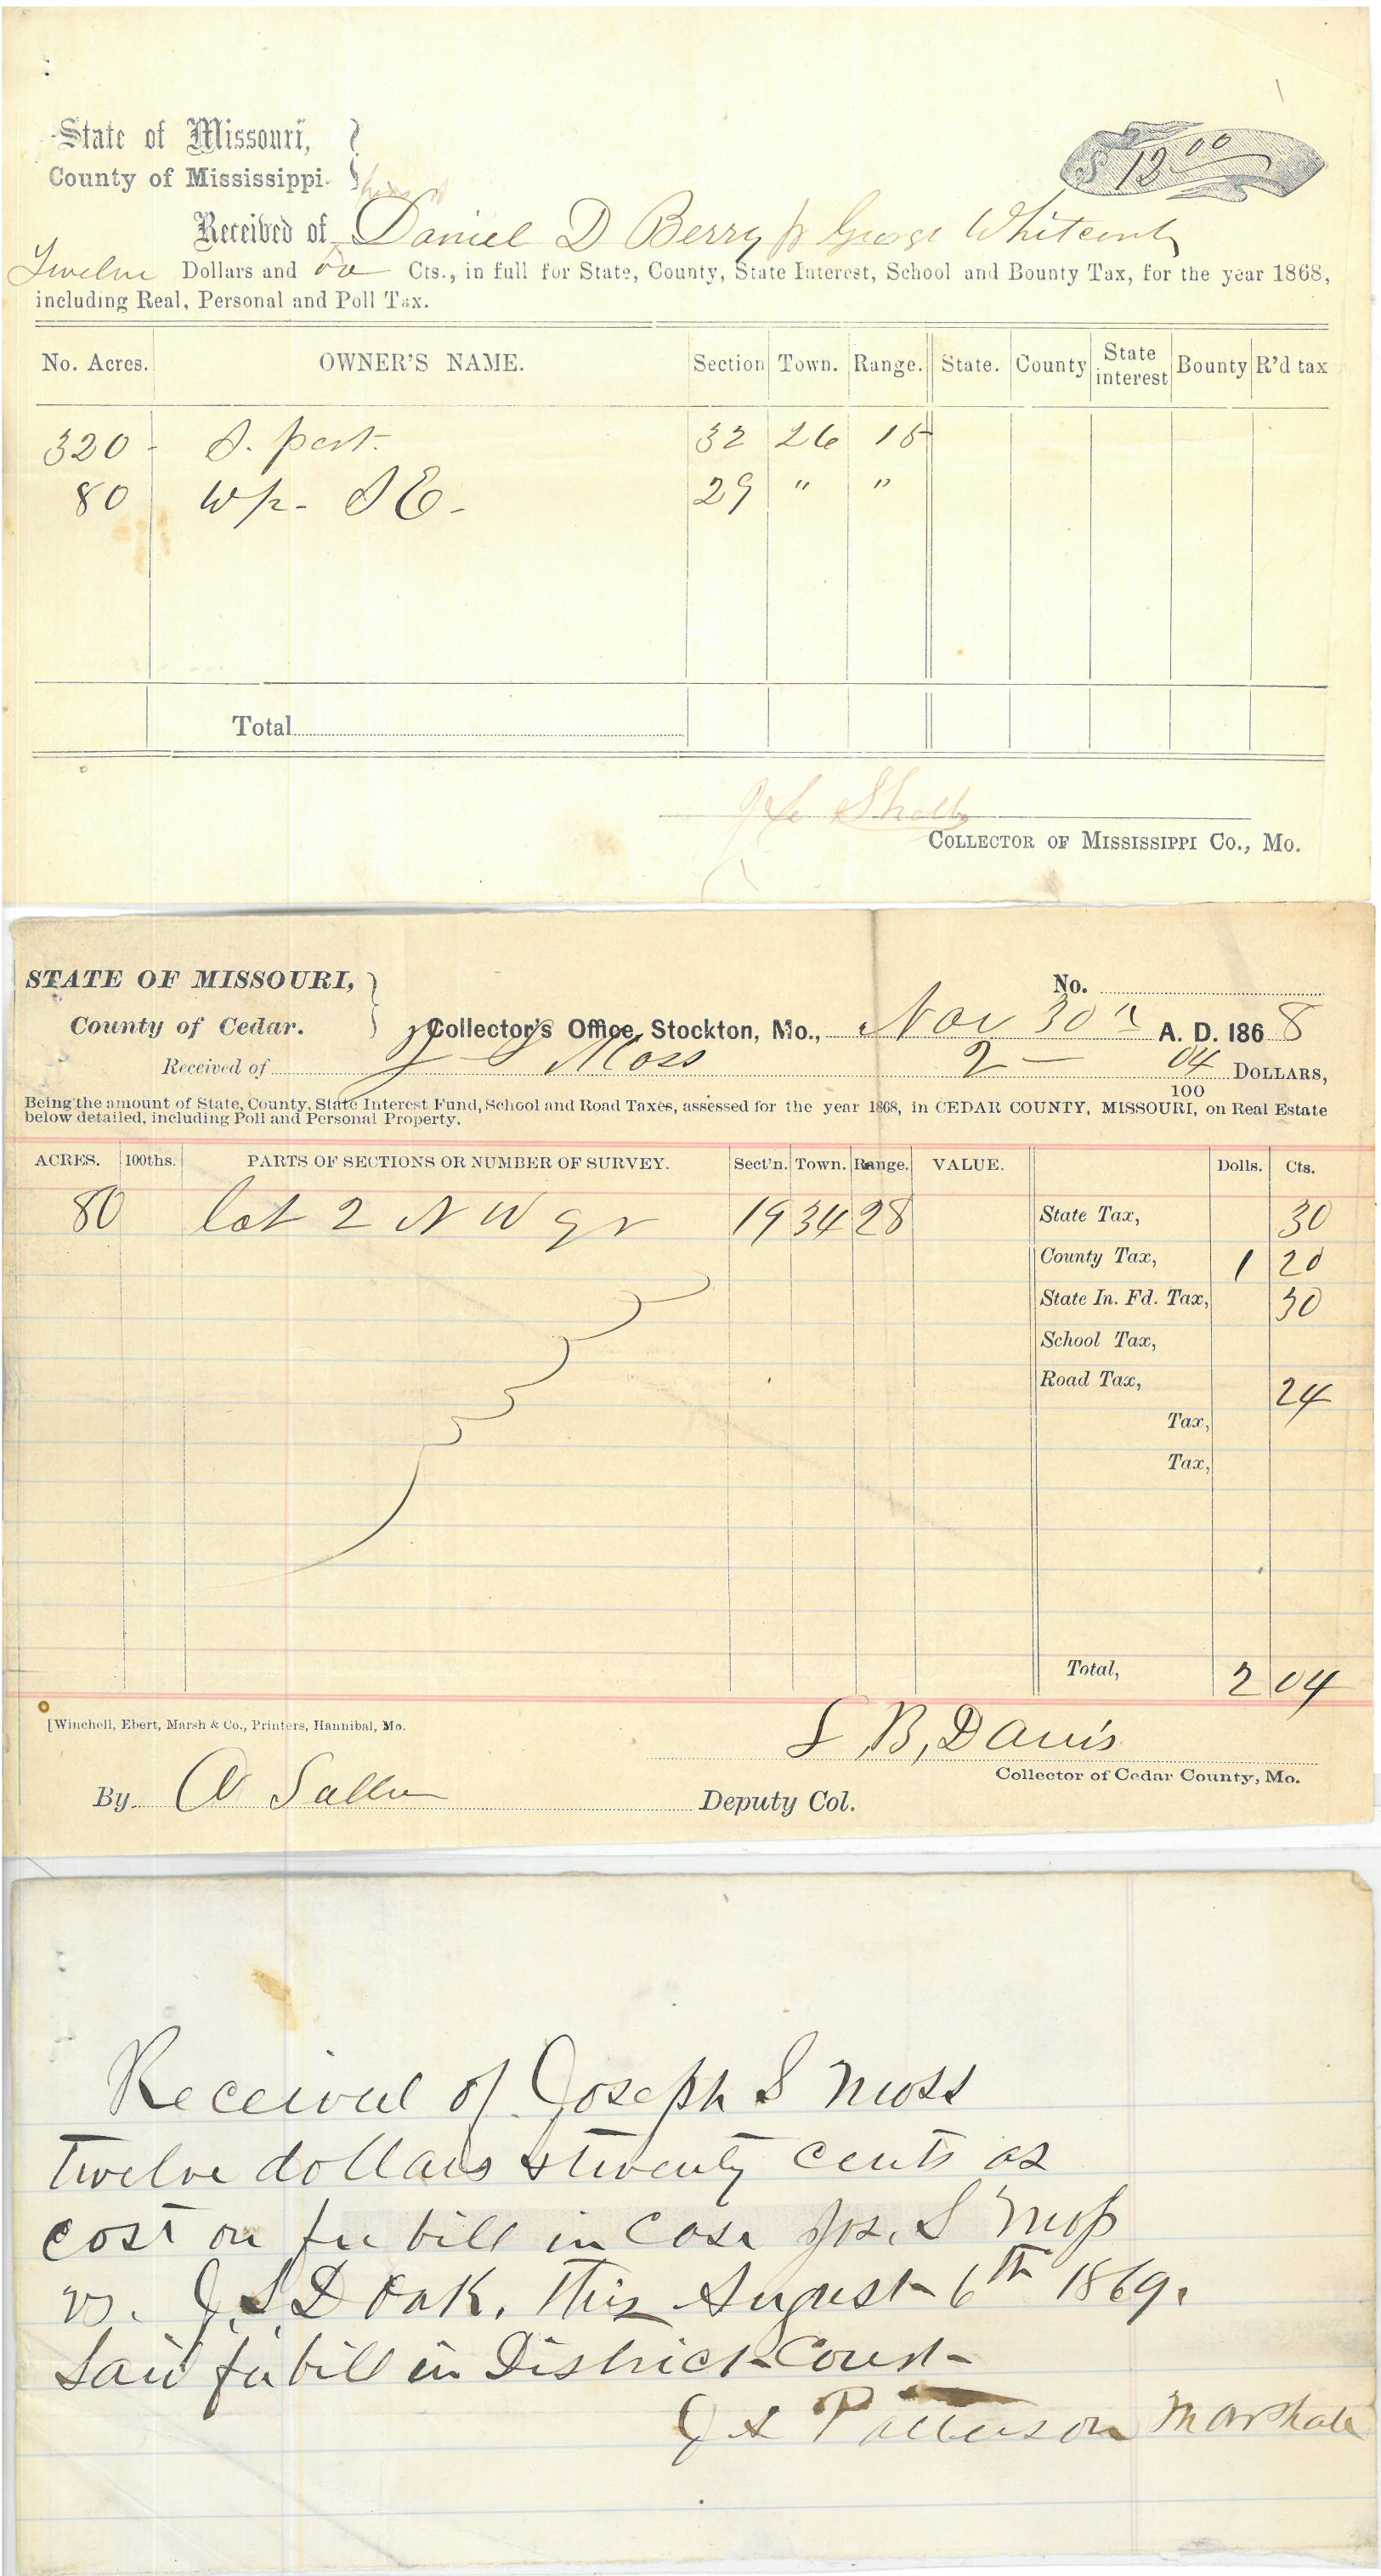 State of Missouri,
County of Mississippi.
$ 12 00
Received of Daniel D Berry pr George Whitcomb
Twelve Dollars and 00 Cts., in full for State, County, State Interest, School and Bounty Tax, for the year 1868,
including Real, Personal and Poll Tax.
No. Acres. OWNER'S NAME. Section Town. Range. State. County State interest Bounty R'd tax
320 - S. part. 32 26 15
80 W½ - SE - 29 " "
Total
COLLECTOR OF MISSISSIPPI CO., MO.
STATE OF MISSOURI,
No.
County of Cedar. Collector's Office, Stockton, Mo., Nov 30th A. D. 1868
Received of J S Moss 2 — 04/100 DOLLARS,
Being the amount of State, County, State Interest Fund, School and Road Taxes, assessed for the year 1868, in CEDAR COUNTY, MISSOURI, on Real Estate
below detailed, including Poll and Personal Property.
ACRES. 100ths. PARTS OF SECTIONS OR NUMBER OF SURVEY. Sect'n. Town. Range. VALUE. Dolls. Cts.
80 lot 2 N W qr 19 34 28 State Tax, 30
County Tax, 1 20
State In. Fd. Tax, 30
School Tax,
Road Tax, 24
Tax,
Tax,
Total, 2 04
[Winchell, Ebert, Marsh & Co., Printers, Hannibal, Mo.
S, B, Davis
Collector of Cedar County, Mo.
By Deputy Col.
Received of Joseph S Moss
Twelve dollars & twenty cents as
cost on fee bill in Case Jos. S Moss
vs. J. S. Doak. This August 6th 1869.
Said fee bill in District Court -
J S Patterson Marshale